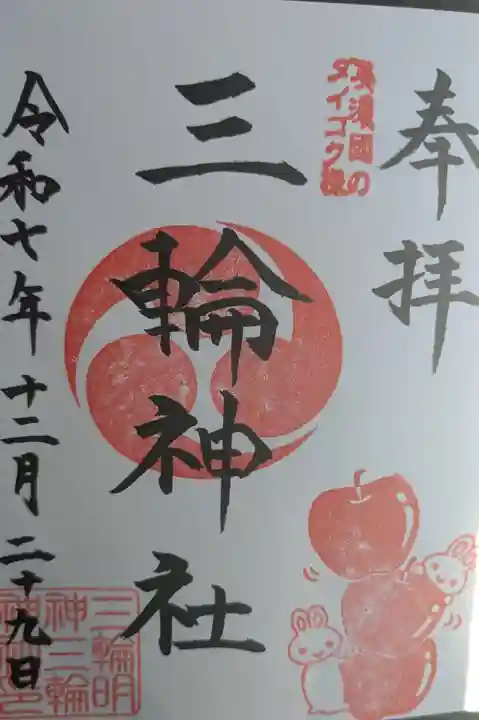 奉拝
那須國の
ダイコク様
三輪神社
令和七年十二月二十九日
三輪明
神三輪